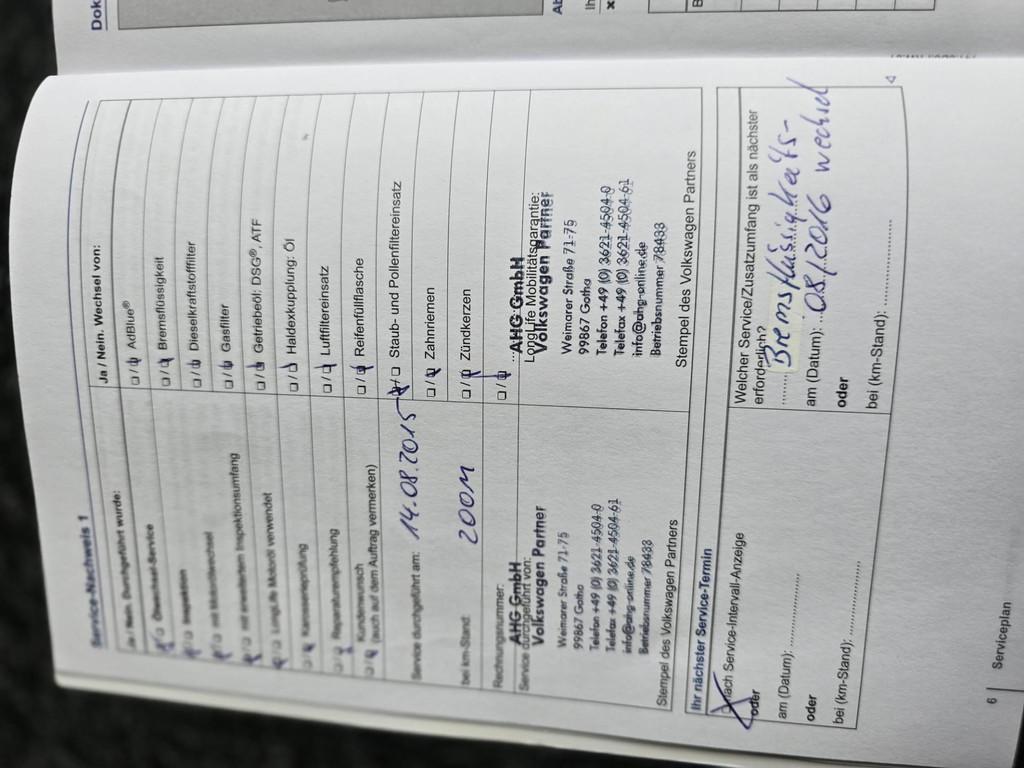 Dok
Service-Nachweis 1
Ja / Nein. Durchgeführt wurde:
Ölwechsel-Service
Inspektion
mit Motorölwechsel
mit erweitertem Inspektionsumfang
LongLife Motoröl verwendet
Karosserieprüfung
Reparaturempfehlung
Kundenwunsch
(auch auf dem Auftrag vermerken)
Service durchgeführt am: 14.08.2015
bei km-Stand: 200M
Rechnungsnummer:
Service durchgeführt von:
AHG GmbH
Volkswagen Partner
Weimarer Straße 71-75
99867 Gotha
Telefon +49 (0) 3621-4504-0
Telefax +49 (0) 3621-4504-61
info@ahg-online.de
Betriebsnummer 78433
Stempel des Volkswagen Partners
Ja / Nein. Wechsel von:
□ / □ AdBlue®
□ / □ Bremsflüssigkeit
□ / □ Dieselkraftstofffilter
□ / □ Gasfilter
□ / □ Getriebeöl: DSG®, ATF
□ / □ Haldexkupplung: Öl
□ / □ Luftfiltereinsatz
□ / □ Reifenfüllflasche
□ / □ Staub- und Pollenfiltereinsatz
□ / □ Zahnriemen
□ / □ Zündkerzen
□ / □
LongLife Mobilitätsgarantie:
AHG GmbH
Volkswagen Partner
Weimarer Straße 71-75
99867 Gotha
Telefon +49 (0) 3621-4504-0
Telefax +49 (0) 3621-4504-61
info@ahg-online.de
Betriebsnummer 78433
Stempel des Volkswagen Partners
Ihr nächster Service-Termin
nach Service-Intervall-Anzeige
oder
am (Datum):
oder
bei (km-Stand):
Welcher Service/Zusatzumfang ist als nächster
erforderlich?
Bremsflüssigkeits-
am (Datum): 08/2016 wechsel
oder
bei (km-Stand):
6 Serviceplan